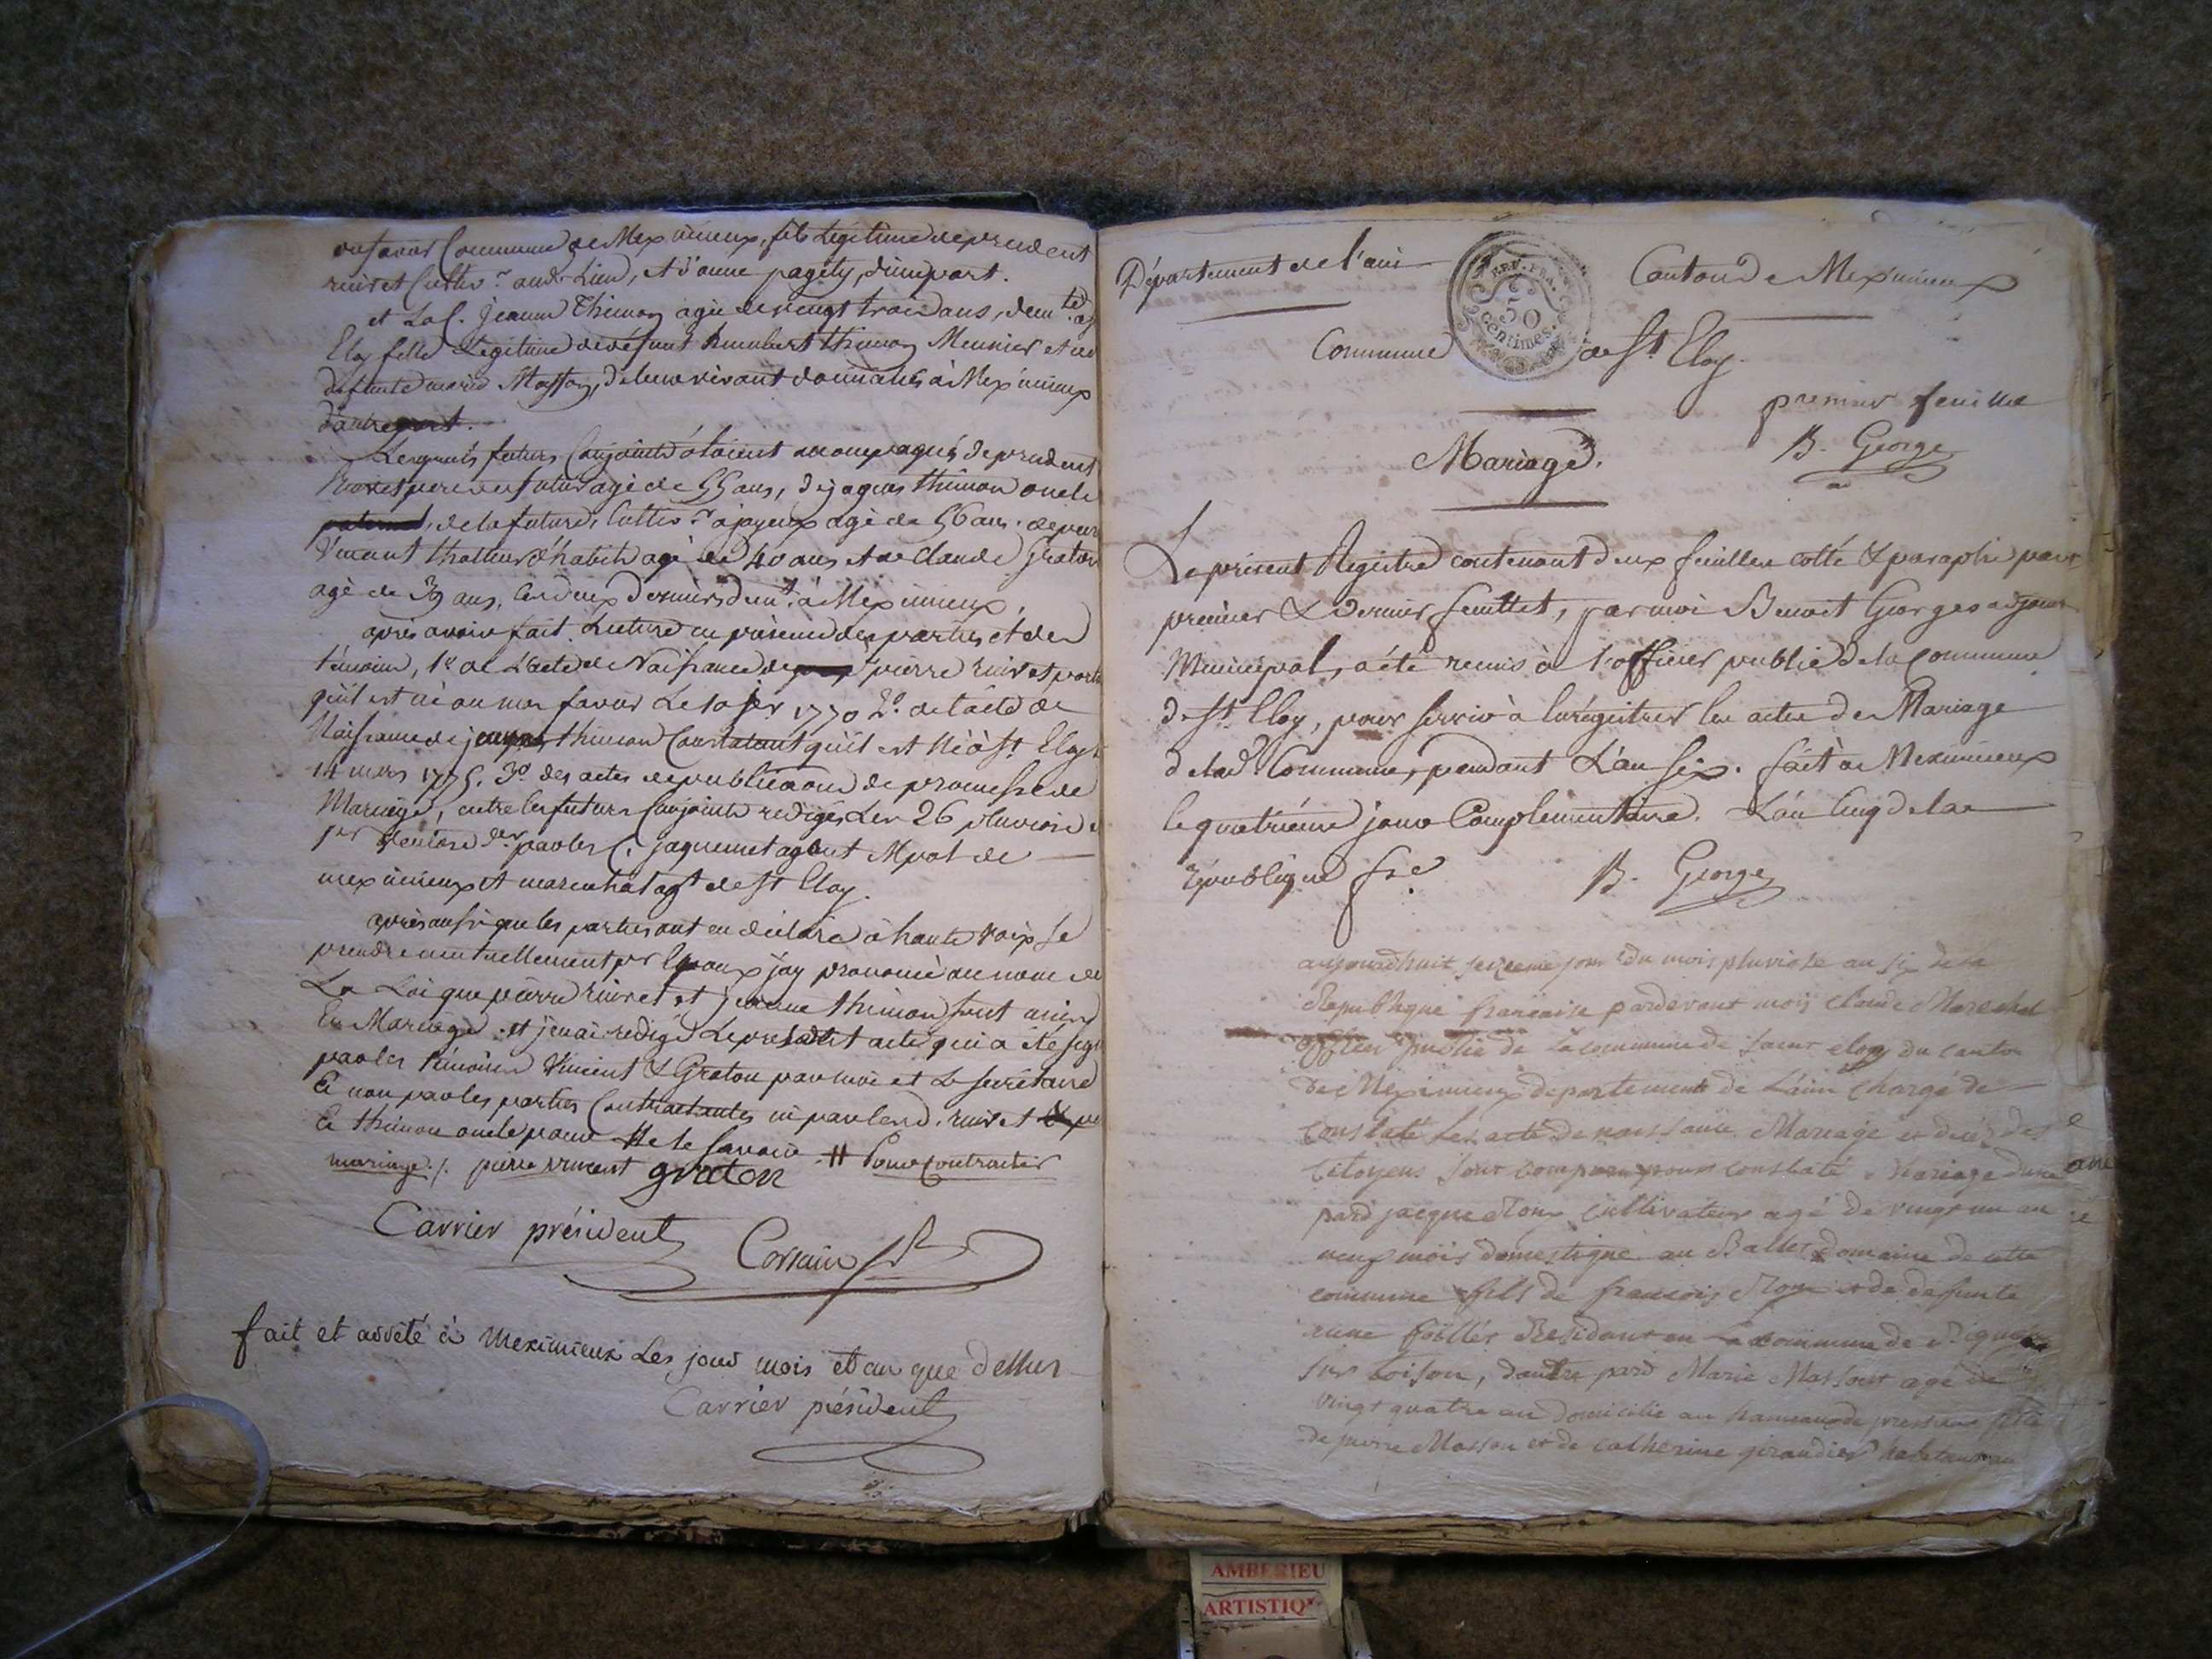 favor Commune de Meximieux, fils Legitime de prudent
ruivet Cultivr. aud. Lieu, et d'anne pagety, d'une part.
et La C. jeanne Thimon agée de vingt trois ans, demte. a St
Eloy fille Legitime de défunt humbert thimon Meunier et de
defunte marie Masson, de leur vivant domiciliés à Meximieux
d'autre part.
Lesquels futurs Conjoints étoient accompagnés de prudent
Ruivet pere du futur agé de 55 ans, de jaques thimon oncle
paternel, de la future, Cultivr. a joyeux agé de 56 ans. de pierre
Vincent thailleur d'habits agé de 40 ans et de Claude Graton
agé de 39 ans, Ces deux derniers demt. à Meximieux.
après avoir fait Lecture en présence des parties et des
témoins, 1e. de L'acte de Naissance de pierre ruivet portant
qu'il est né au mas favor Le 10 1770 2o. de l'acte de
Naissance de jeanne thimon Constatant qu'il est Né à St. Eloy le
14 mars 1775. 3o. des actes de publications de promesse de
Mariage, entre les futurs Conjoints redigés Les 26 pluviose et
1er Ventose der. par les C. jaquemet agent Mpal de
meximieux et marechal agt. de St Eloy.
après aussi que les parties ont eu déclaré à haute voix se
prendre mutuellement pr. Epoux j'ay prononcé au nom de
La Loi que pierre ruivet et jeanne thimon sont unis
En Mariage. et j'en ai redigé Le présent acte qui a été signé
par les témoins Vincent & Graton par moi et Le secrétaire
Et non par les parties Contractantes ni par les d. ruivet
Et thimon oncle pour Ne le savoir # Pour Contracter
mariage ./. pierre vincent graton
Carrier président Corsain
fait et arrêté à Meximieux Les jour mois et an que dessus
Carrier président
Département de l'ain Canton de Meximieux
REP. FRA. 50 centimes.
Commune de St. Eloy.
premier feuillet
B. George
Mariage.
Le présent Régistre contenant deux feuilles cotté & paraphé par
premier & dernier feuillet, par moi Benoit George adjoint
Municipal, a été remis à l'officier public de la Commune
de St. Eloy, pour servir à enrégistrer les actes de Mariage
de lad. Commune, pendant L'an six. fait à Meximieux
le quatrième jour Complémentaire. L'an Cinq de la
République fse.
B. George
aujourdhuit seizeme jour du mois pluviose an six de la
Republique francaise pardevant moy claude Marechal
officier public de la commune de saint eloy du canton
de Meximieux departement de L'ain chargé de
constaté les acte de naissance Mariage et decès des
citoyens sont comparu pour constaté Mariage d'une
pard jacque cultivateur agé de vingt un an
neuf mois domestique au domaine de cette
commune fils de francois et de defunte
anne Residant en La commune de
sur Loison, dautre pard Marie Masson agé de
vingt quatre an domicilié au hameau de fille
de pierre Masson et de catherine girandier habitant au
AMBERIEU
ARTISTIQ